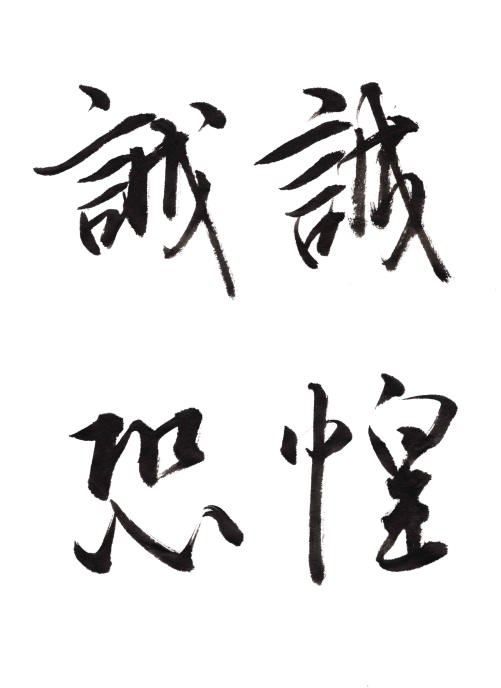 誠惶
誠恐